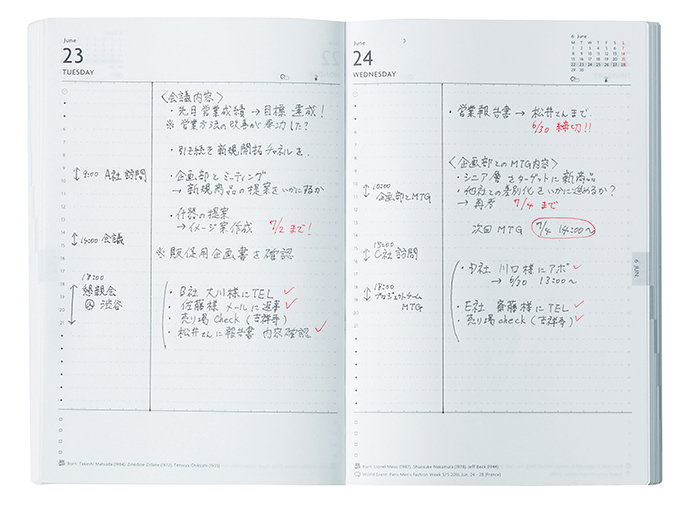 June
23
TUESDAY
9:00 A社訪問
14:00 会議
18:00
懇親会
渋谷
<会議内容>
・先月営業成績→目標達成!
※営業方法の改善が奏功した?
・引き続き新規開拓チャネルを、
・企画部とミーティング
→新規商品の提案をいかにするか
・什器の提案
→イメージ案作成 7/2まで!
※販促用企画書を確認
・B社 大川様にTEL
佐藤様 メールに返事
・売り場check(吉祥寺)
・松井さんに報告書 内容確認
June
24
WEDNESDAY
6 June
M T W T F S S
1 2 3 4 5 6 7
8 9 10 11 12 13 14
15 16 17 18 19 20 21
22 23 24 25 26 27 28
29 30
10:00
企画部とMTG
15:00
C社訪問
18:00
プロジェクトチーム
MTG
・営業報告書→松井さんまで.
6/30 締切!!
<企画部とのMTG内容>
・シニア層をターゲットに新商品
・他社との差別化をいかに進めるか?
→再考 7/4まで
次回MTG 7/4 14:00〜
・D社 川口様にアポ
→6/30 13:00〜
・E社 斎藤様にTEL
・売り場check(吉祥寺)
6 JUN
Born: Lionel Messi (1987), Shunsuke Nakamura (1978), Jeff Beck (1944)
World Event: Paris Men's Fashion Week S/S 2016 Jun. 24 - 28 (France)